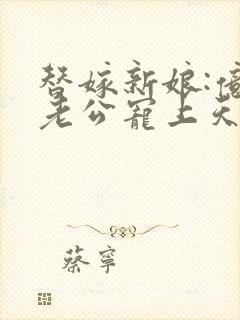 替嫁新娘:億
老公寵上天
蔡寧